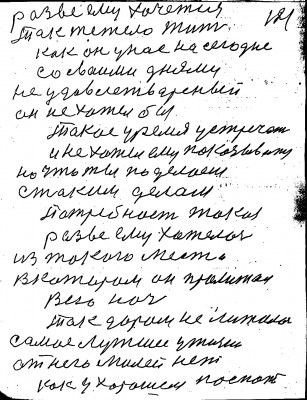 разве ему хочется
Так тежело жить
как он у нас на сегодне
со своими днями
не удовлетвареный
он не хотел бы
Такое уремя устречат
и не хотел ему показыват
но что ты поделаеш
с таким делам
Потребност такая
разве ему хотелос
из такого места
в катором он пролежал
всю ноч
Так даром не
самое лутшее у жизни
от него милей нет
как у хорошем